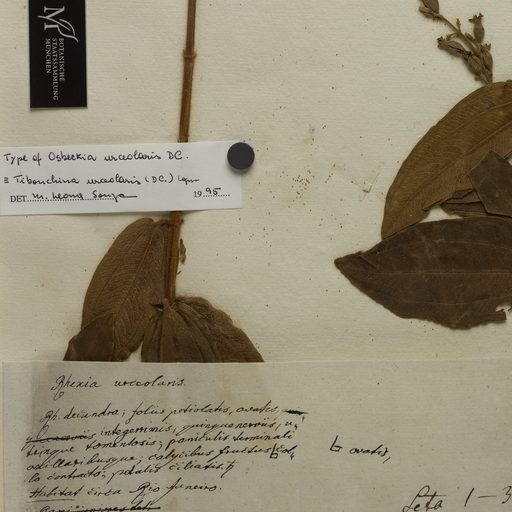 BOTANISCHE
STAATSSAMMLUNG
MÜNCHEN
Type of Osbeckia urceolaris DC.
≡ Tibouchina urceolaris (DC.) Cogn
DET. M. Leoni Souza 1995
Rhexia urceolaris.
Rh. decandra; foliis petiolatis, ovatis,
integerrimis, quinquenervus, u-
trinque tomentosis; paniculis terminali
axillaribusque; calycibus fructus col
lo contracto; petalis ciliatis. ♄
Habitat circa Rio Janeiro.
b ovatis,
Leta 1-3